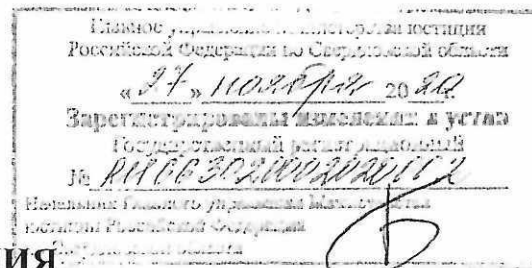 Главное управление Министерства юстиции
Российской Федерации по Свердловской области
« 27 » ноября 20 20 г.
Зарегистрированы изменения в устав
Государственный регистрационный
№ RU663021002020002
Начальник Главного управления Министерства
юстиции Российской Федерации
Свердловской области
ИЯ